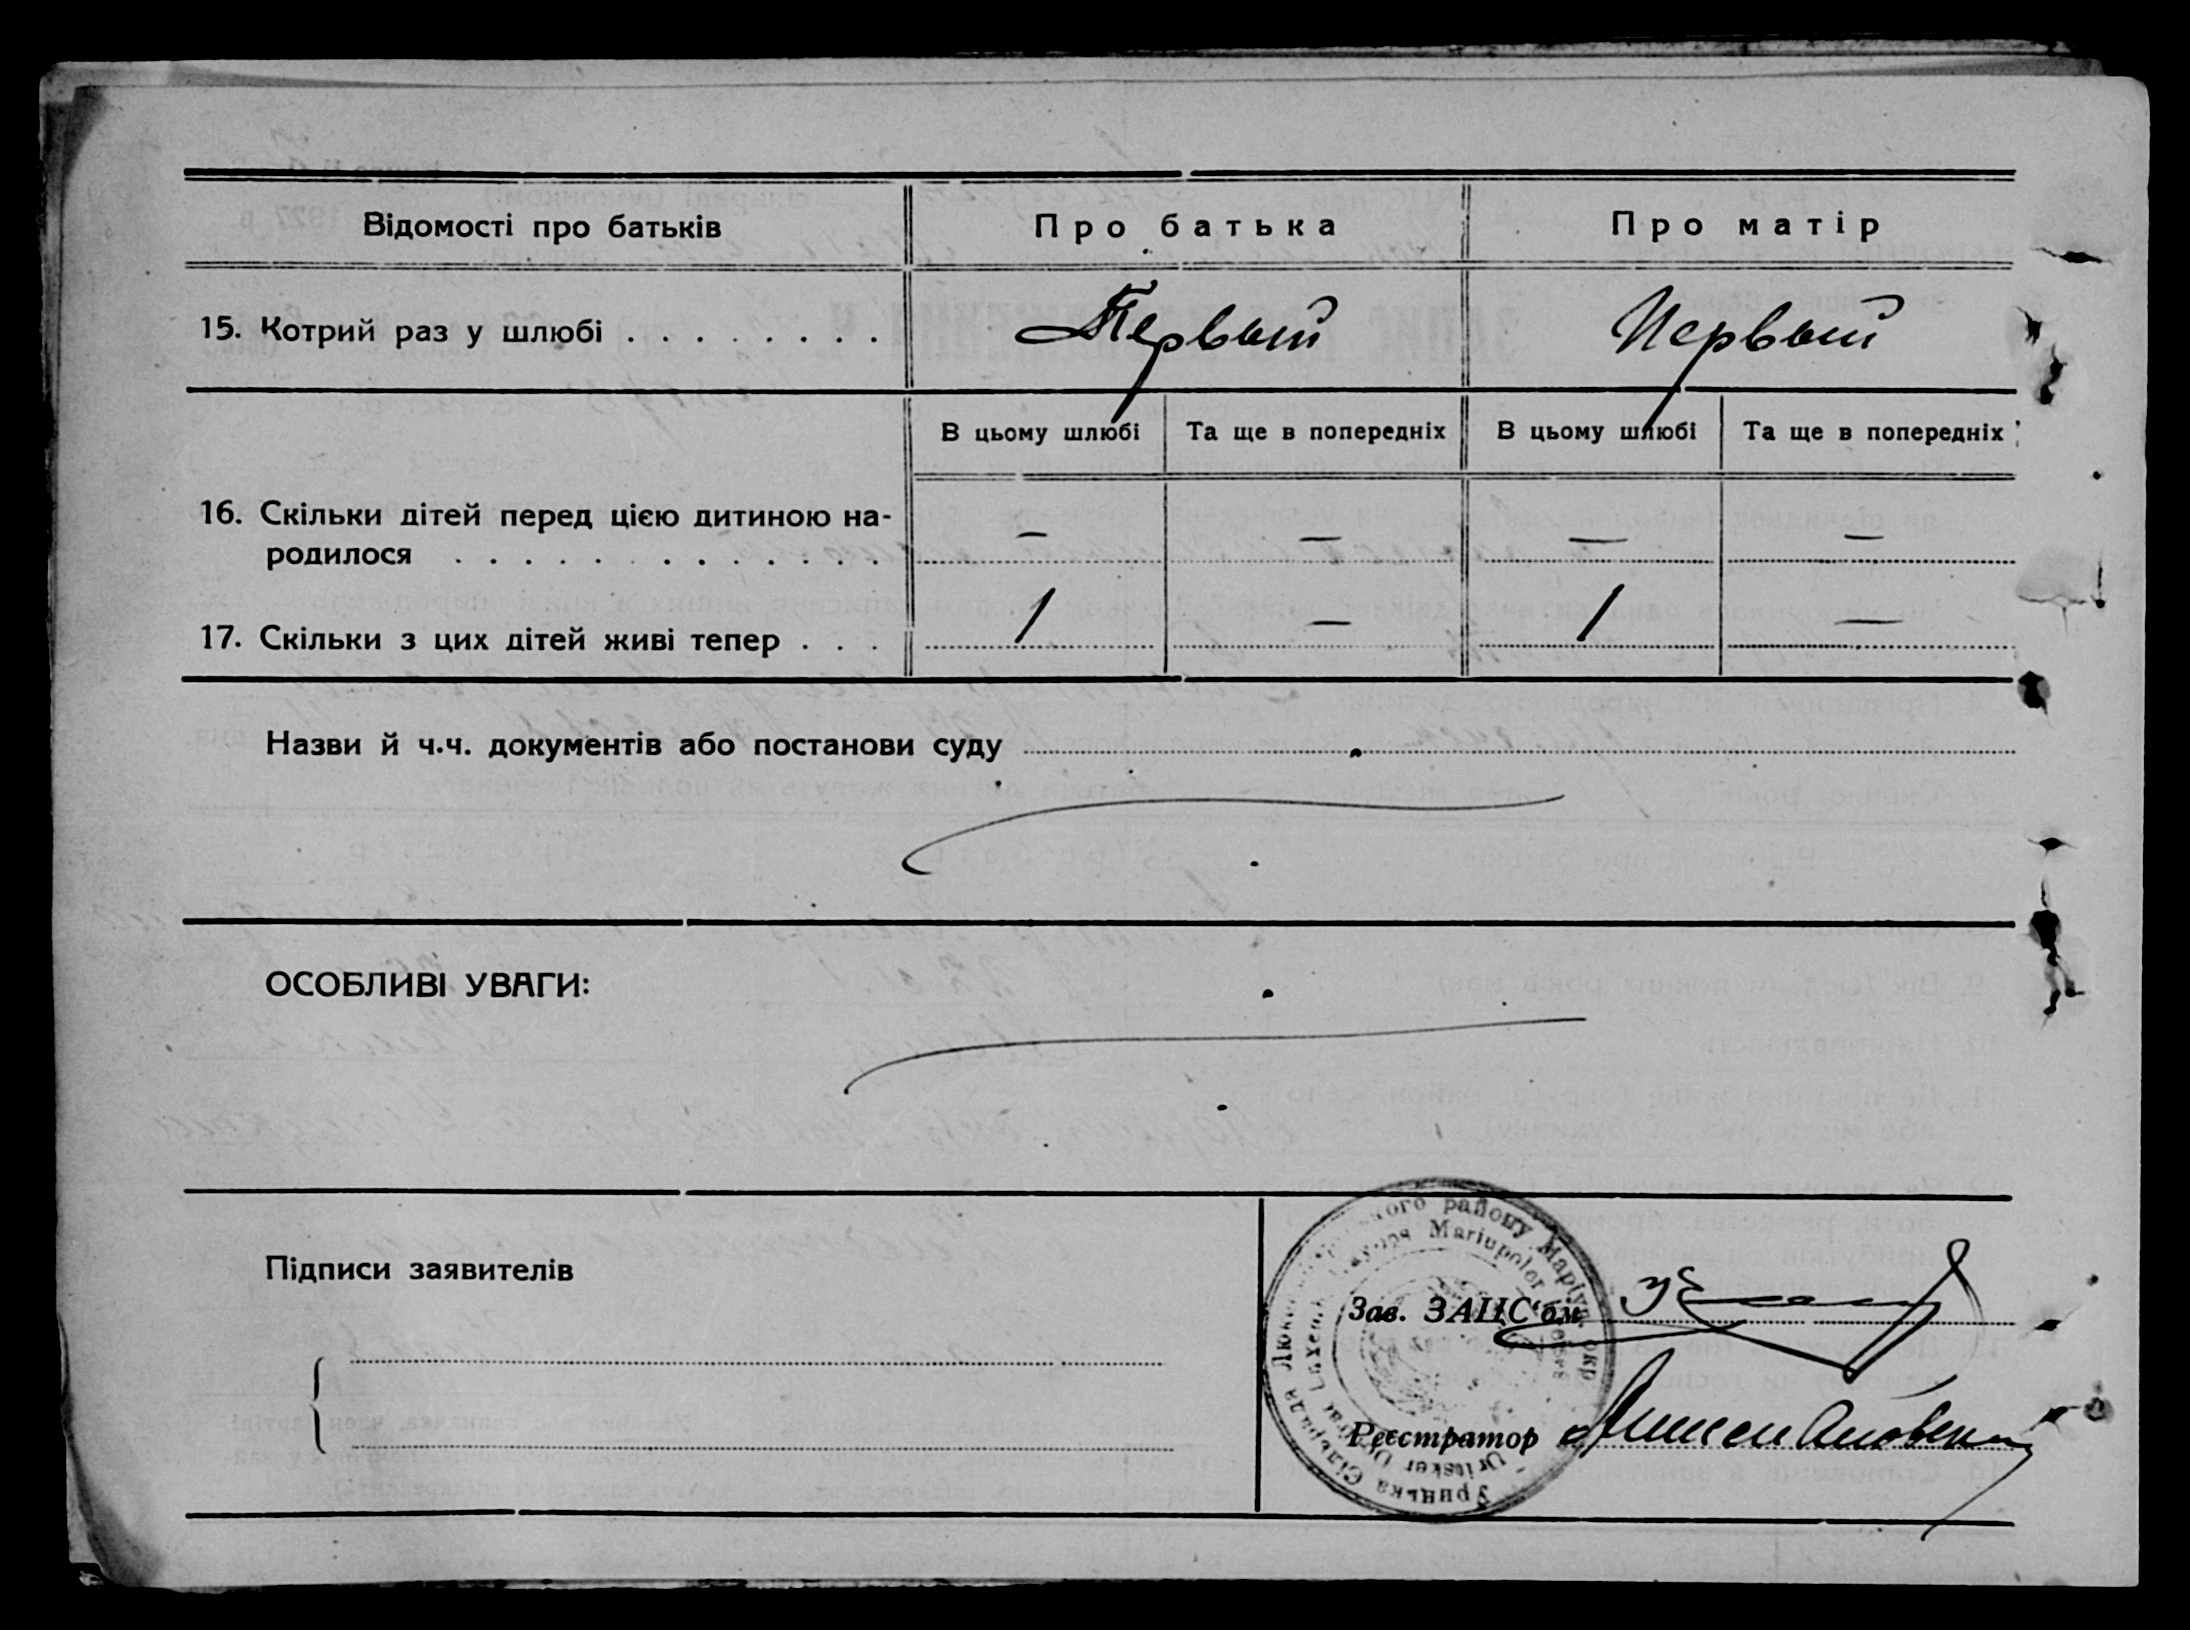 Відомості про батьків Про батька Про матір
15. Котрий раз у шлюбі . . . . . . . . Первый Первый
В цьому шлюбі Та ще в попередніх В цьому шлюбі Та ще в попередніх
16. Скільки дітей перед цією дитиною на-
родилося . . . . . . . . . . . . . — — — —
17. Скільки з цих дітей живі тепер . . . 1 — 1 —
Назви й ч.ч. документів або постанови суду
ОСОБЛИВІ УВАГИ:
Підписи заявителів
Зав. ЗАЦС'ом
Реєстратор
району Маріуп. окр
Урицька Сільрада Люк
Mariupoler
Uritsker